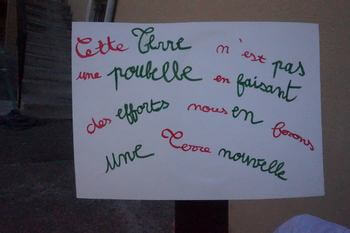 Cette Terre n'est pas
une poubelle en faisant
des efforts nous en ferons
une Terre nouvelle